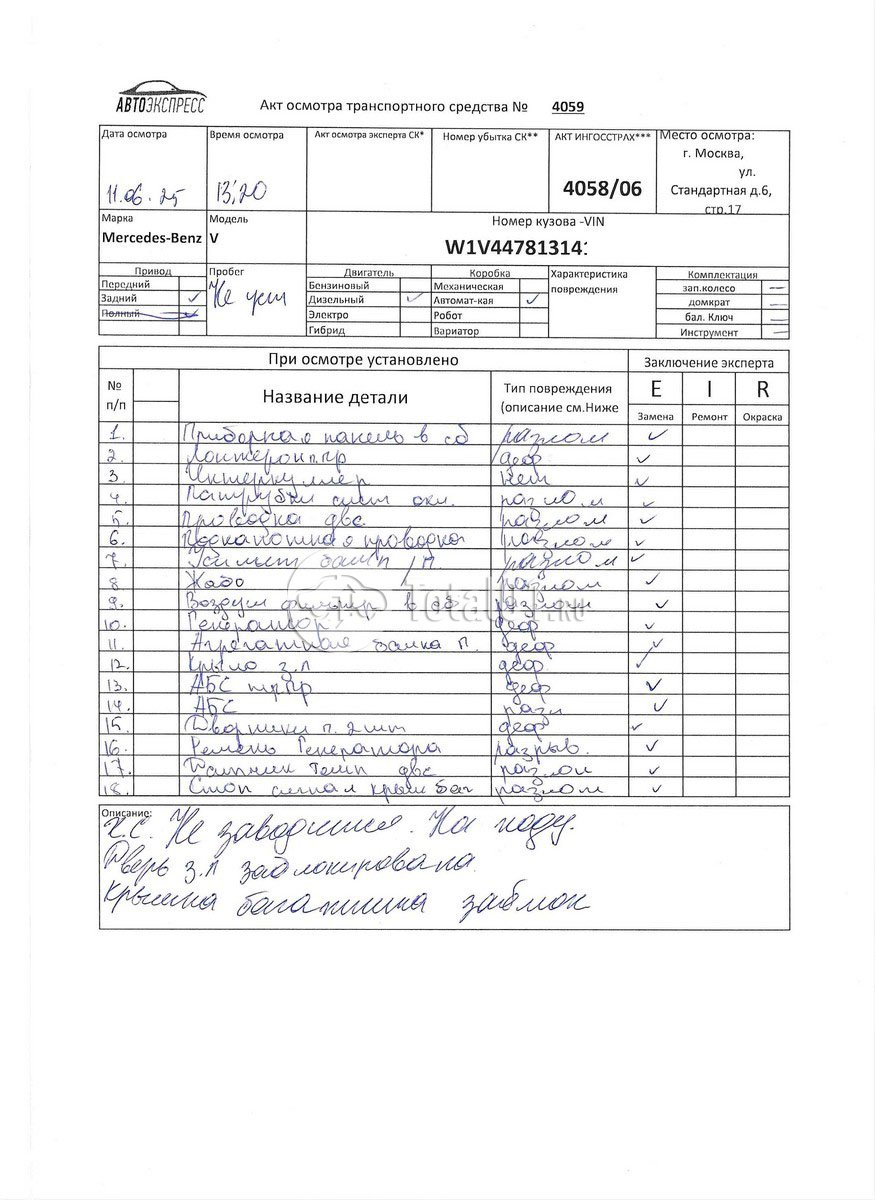 АВТОЭКСПРЕСС
Акт осмотра транспортного средства № 4059
Дата осмотра
11.06.25
Время осмотра
13;20
Акт осмотра эксперта СК*
Номер убытка СК**
АКТ ИНГОССТРАХ***
4058/06
Место осмотра:
г. Москва,
ул.
Стандартная д.6,
стр.17
Марка
Mercedes-Benz
Модель
V
Номер кузова -VIN
W1V44781314
Привод
Передний
Задний ✓
Полный
Пробег
Не уст
Двигатель
Бензиновый
Дизельный ✓
Электро
Гибрид
Коробка
Механическая
Автомат-кая ✓
Робот
Вариатор
Характеристика
повреждения
Комплектация
зап.колесо —
домкрат —
бал. Ключ —
Инструмент —
При осмотре установлено
Заключение эксперта
№
п/п
Название детали
Тип повреждения
(описание см.Ниже
E I R
Замена Ремонт Окраска
1. Приборная панель в сб разлом ✓
2. Лонжерон п.пр деф ✓
3. Интеркуллер нет ✓
4. Патрубки сист охл. разлом ✓
5. Проводка двс разлом ✓
6. Подкапотная проводка разлом ✓
7. Усилит бамп /П разлом ✓
8 Жабо разлом ✓
9. Воздуш фильтр в сб разлом ✓
10. Генератор деф ✓
11. Агрегатная балка п. деф ✓
12. Крыло з.л деф ✓
13. АБС деф ✓
14. АБС разл ✓
15. Дворники п. 2шт деф ✓
16. Ремень Генератора разрыв. ✓
17. Датчик темп двс разлом ✓
18. Стоп сигнал крыш баг разлом ✓
Описание:
Не заводится. На ходу.
Дверь з.л заблокирована.
Крышка багажника
TOTAL01.RU